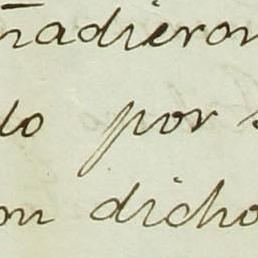 ñadieron
do por s
on dicho